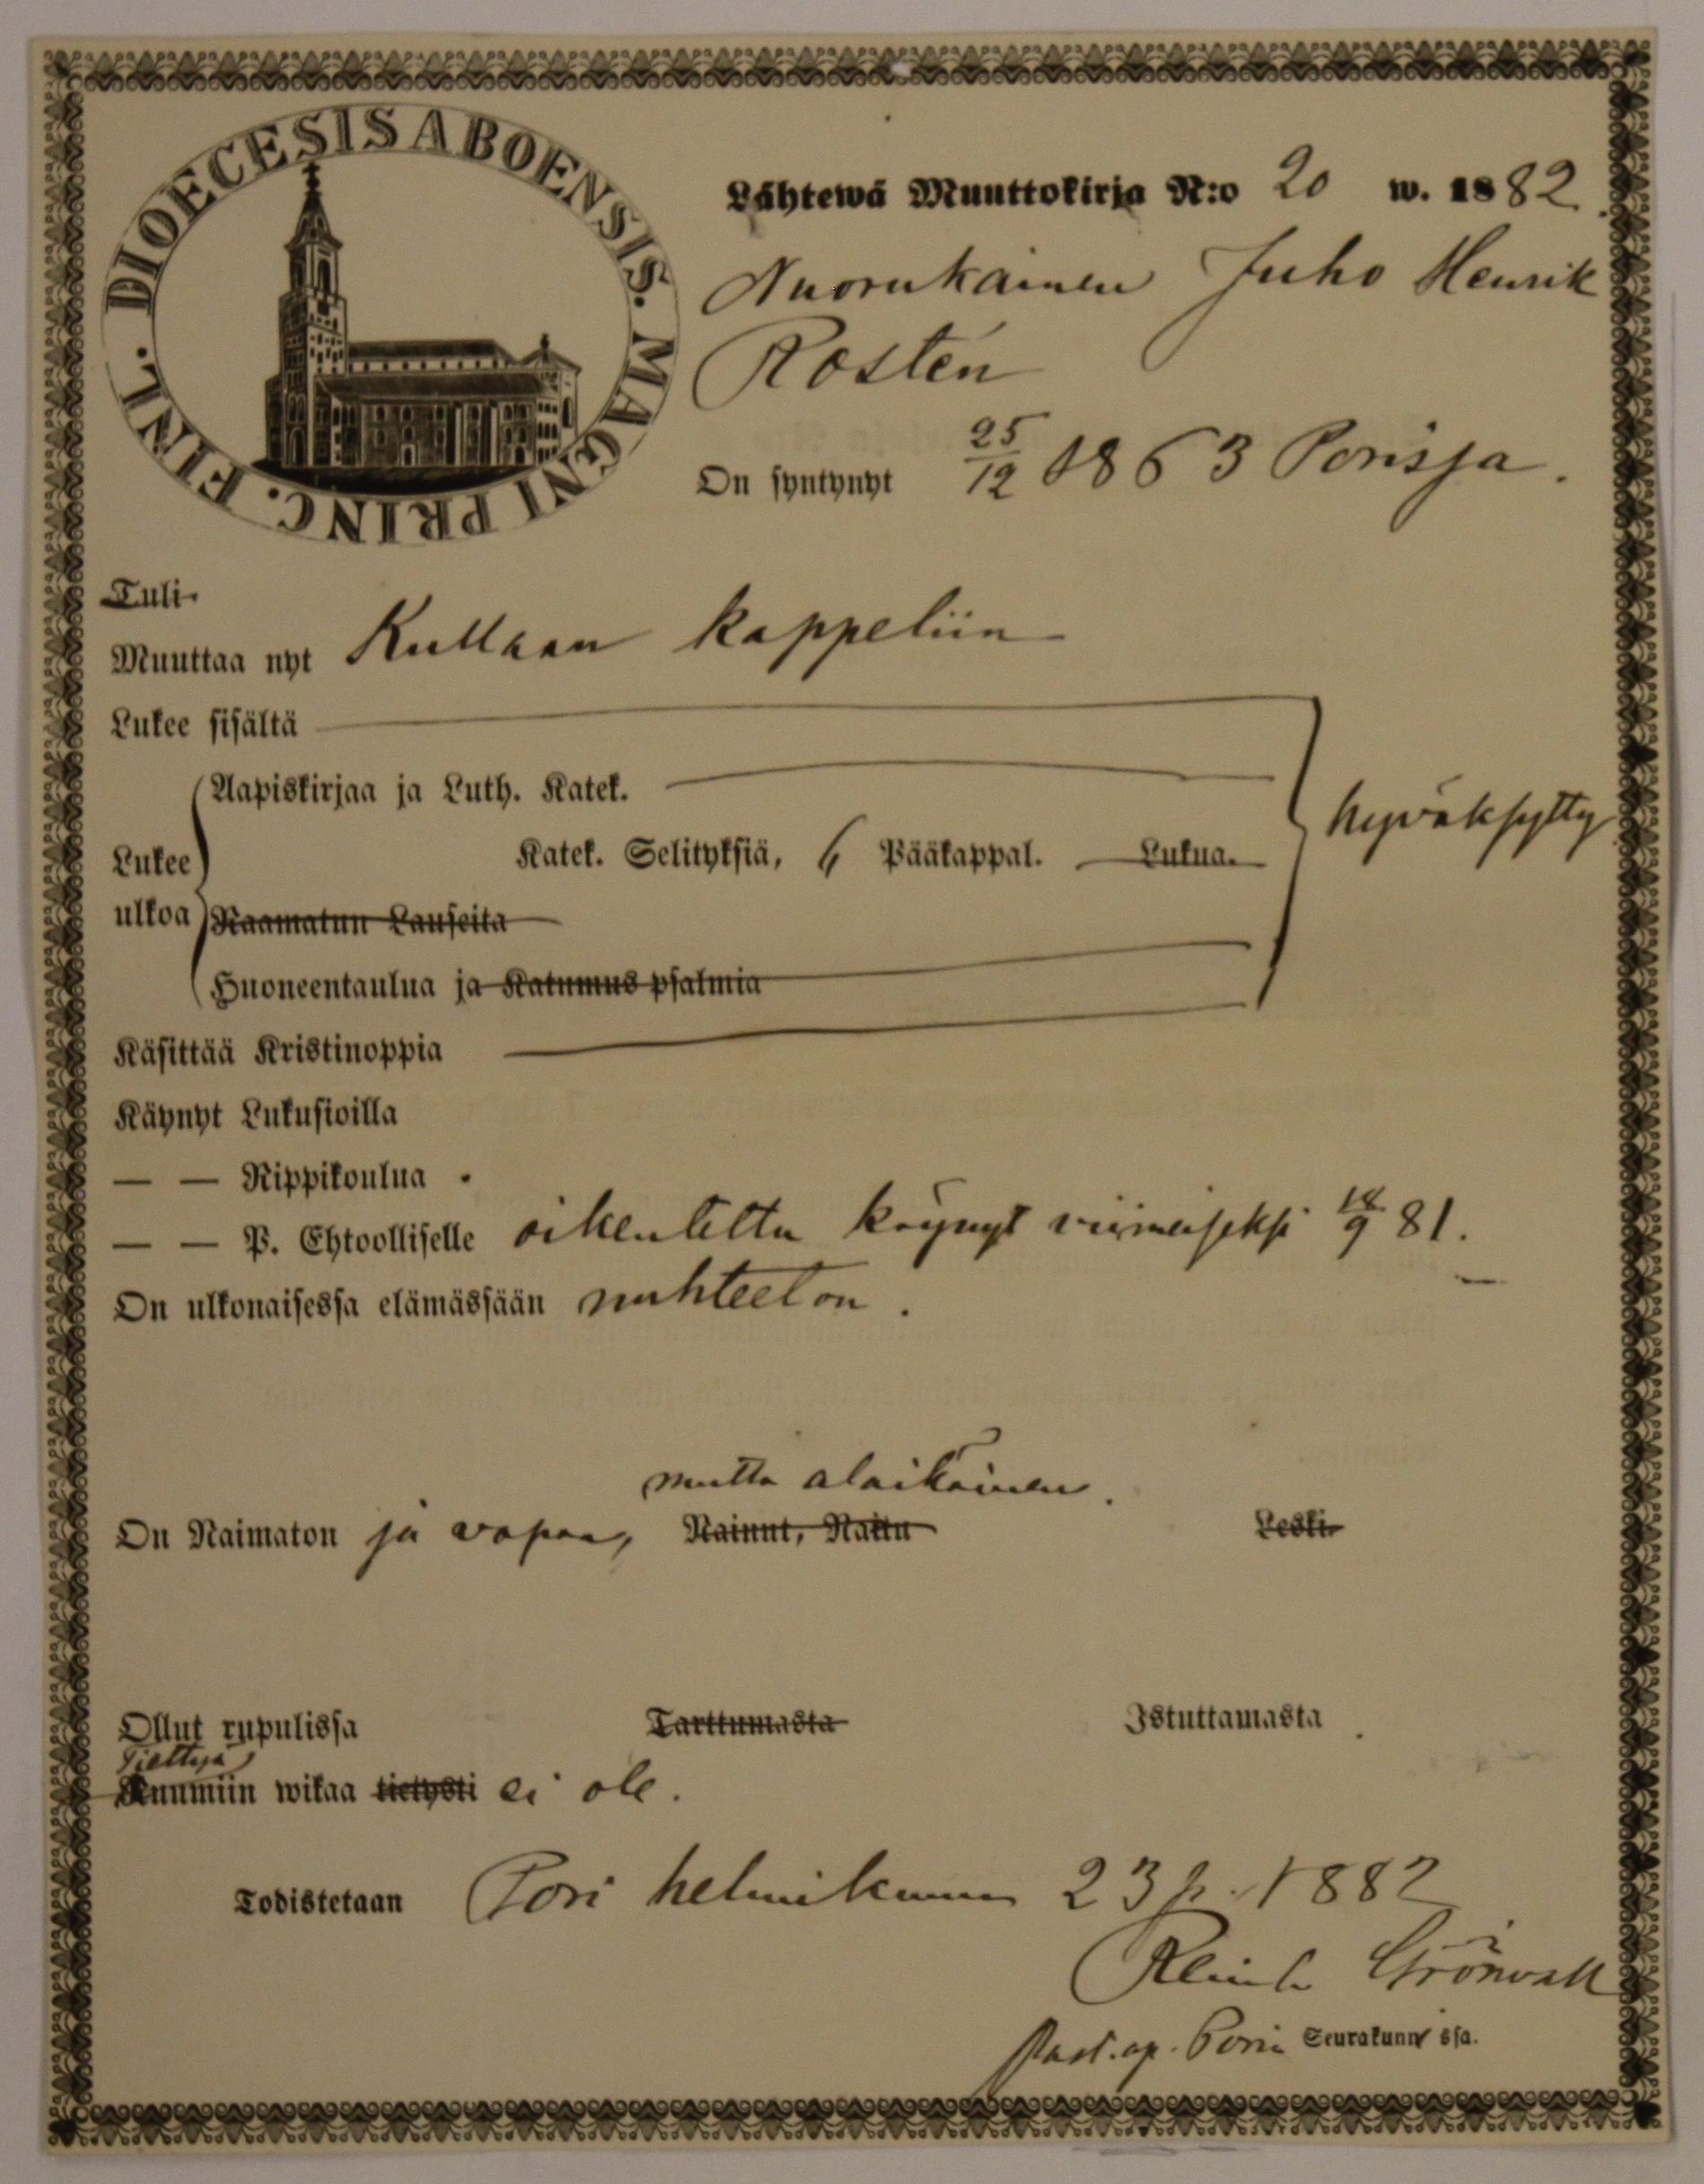 DIOECESIS ABOENSIS. MAGNI PRINC. FINL.
Lähtewä Muuttokirja N:o 20 w. 1882.
Nuorukainen Juho Henrik
Rostén
On syntynyt 25/12 1863 Porissa.
Tuli
Muuttaa nyt Kullaan kappeliin
Lukee sisältä
Aapiskirjaa ja Luth. Katek.
hyväksytty
Lukee Katek. Selityksiä, 6 Pääkappal. Lukua.
ulkoa Raamatun Lauseita
Huoneentaulua ja Katumus psalmia
Käsittää Kristinoppia
Käynyt Lukusioilla
— — Rippikoulua
— — P. Ehtoolliselle oikeutettu käynyt viimeiseksi 18/9 81.
On ulkonaisessa elämässään nuhteeton.
mutta alaikäinen.
On Naimaton ja vapaa, Nainut, Naitu Leski.
Ollut rupulissa Tarttumasta Istuttamasta
Tiettyä
Ruumiin wikaa tietysti ei ole.
Todistetaan Pori helmikuun 23 p. 1882
Grönvall
Past. ap. Porin Seurakunnassa.